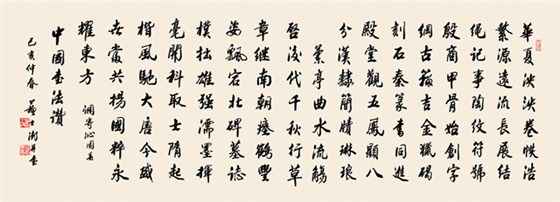 華夏泱泱卷帙浩
繁源遠流長展結
绳記事陶纹符號
殷商甲骨始創字
綱古籀吉金獵碣
刻石秦篆書同進
殿堂觀五鳳顯八
分漢隸簡牘琳琅
蘭亭曲水流觴
啓後代千秋行草
章继南朝瘗鶴豐
姿飄容北碑墓誌
樸拙雄强濡墨揮
毫開科取士隋起
楷風馳大唐今盛
世當共揚國粹永
耀東方 調寄沁園春
中國書法讚
己亥仲春